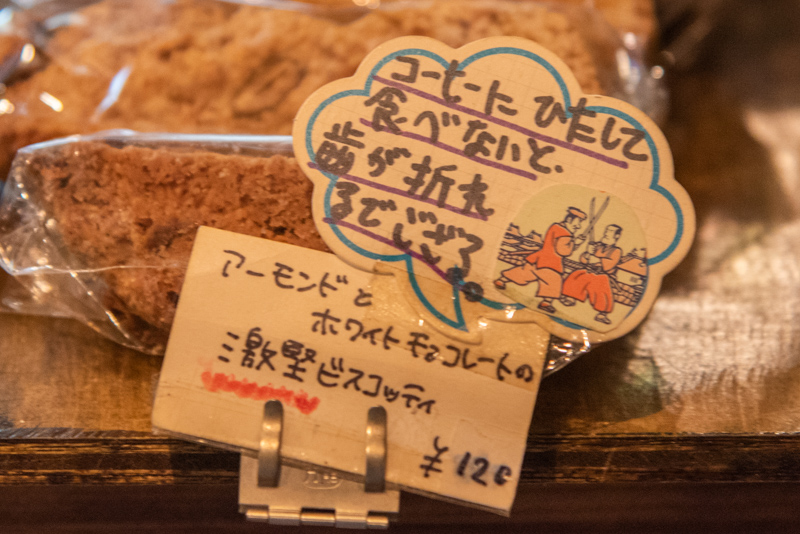 コーヒーにひたして
食べないと、
歯が折れ
るでござる。
アーモンドと
ホワイトチョコレートの
激堅ビスコッティ
¥120